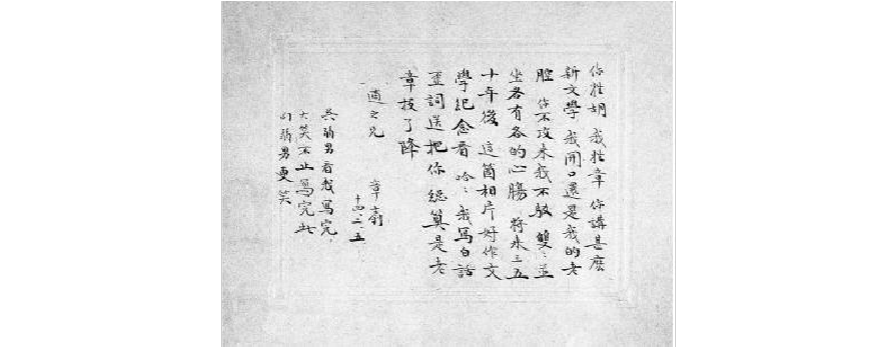 你姓胡 我姓章 你講甚麽
新文學 我開口還是我的老
腔 你不攻來我不駁 雙〻並
坐各有各的心腸 將來三五
十年後 這箇相片好作文
學紀念看 哈〻我寫白話
歪詞送把你 總算是老
章投了降
適之兄 章
十四、二、五
弱男看我寫完，
大笑不止寫完此
弱男更笑